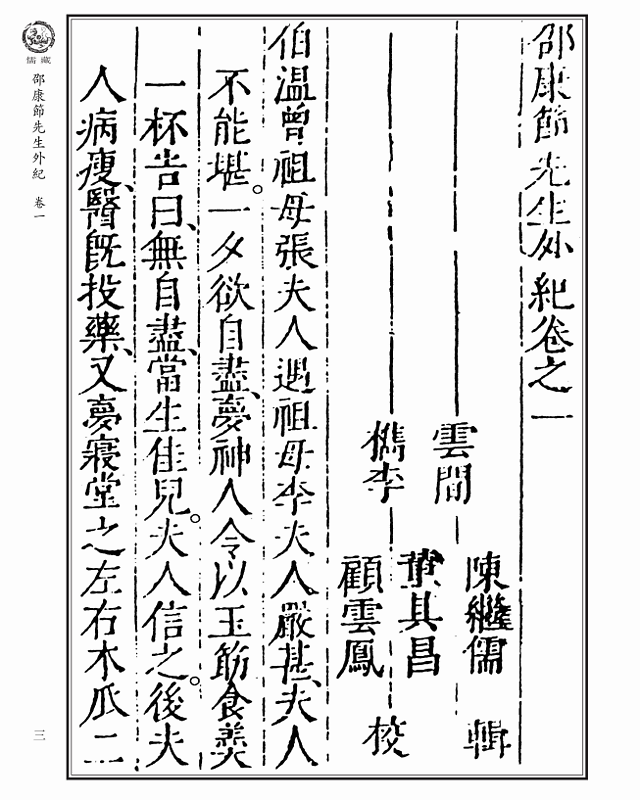 邵康節先生外紀卷之一
雲間 陳繼儒 輯
董其昌
檇李 顧雲鳳 校
伯温曾祖母張夫人遇祖母李夫人嚴甚、夫人
不能堪。一夕欲自盡、夢神人令以玉筯食羹
一杯告曰、無自盡、當生佳兒。夫人信之。後夫
人病瘦、醫旣投藥、又夢寢堂之左右木瓜二
儒藏
邵康節先生外紀 卷一
三